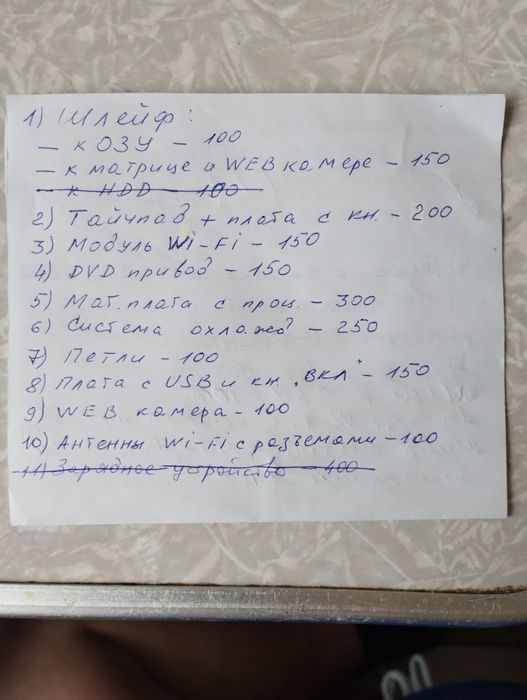 1) Шлейф:
– к ОЗУ – 100
– к матрице и WEB камере – 150
– к HDD – 100
2) Тайчпад + плата с кн. – 200
3) Модуль Wi-Fi – 150
4) DVD привод – 150
5) Мат. плата с проц. – 300
6) Система охлажд – 250
7) Петли – 100
8) Плата с USB и кн. „ВКЛ" – 150
9) WEB камера – 100
10) Антенны Wi-Fi с разъемами – 100
11) Зарядное устройство – 400